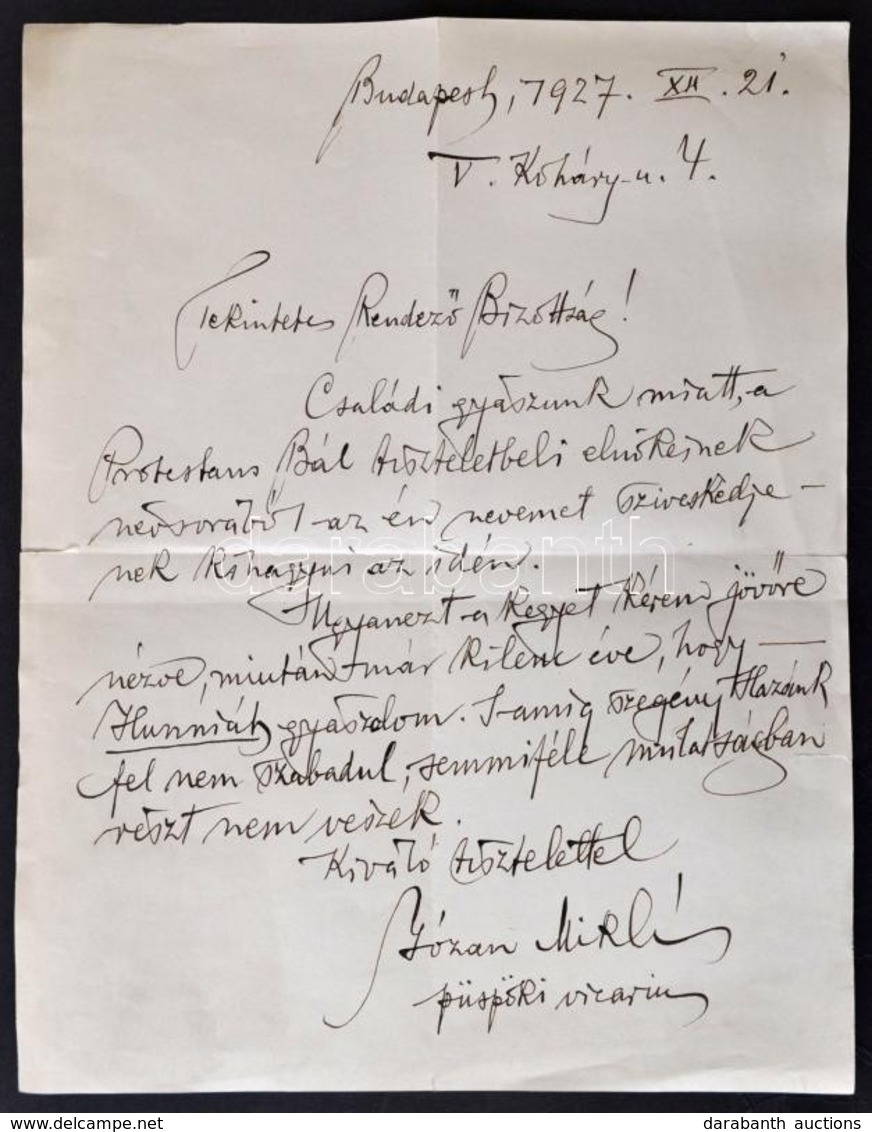 Budapest, 1927. XII. 21.
V. Koháry-u. 4.
Tekintetes Rendező Bizottság!
Családi gyászunk miatt, a
Protestans Bál tiszteletbeli elnökeinek
névsorából az én nevemet sziveskedje-
nek kihagyni az idén.
Ugyanezt a kegyet kérem jövőre
nézve, miután már kilenc éve, hogy —
Hunniát gyászolom. S-amig szegény Hazánk
fel nem szabadul, semmiféle mulatságban
részt nem veszek.
Kiváló tisztelettel
Józan Miklós
püspöki vicarius
darabanth
darabanth auctions